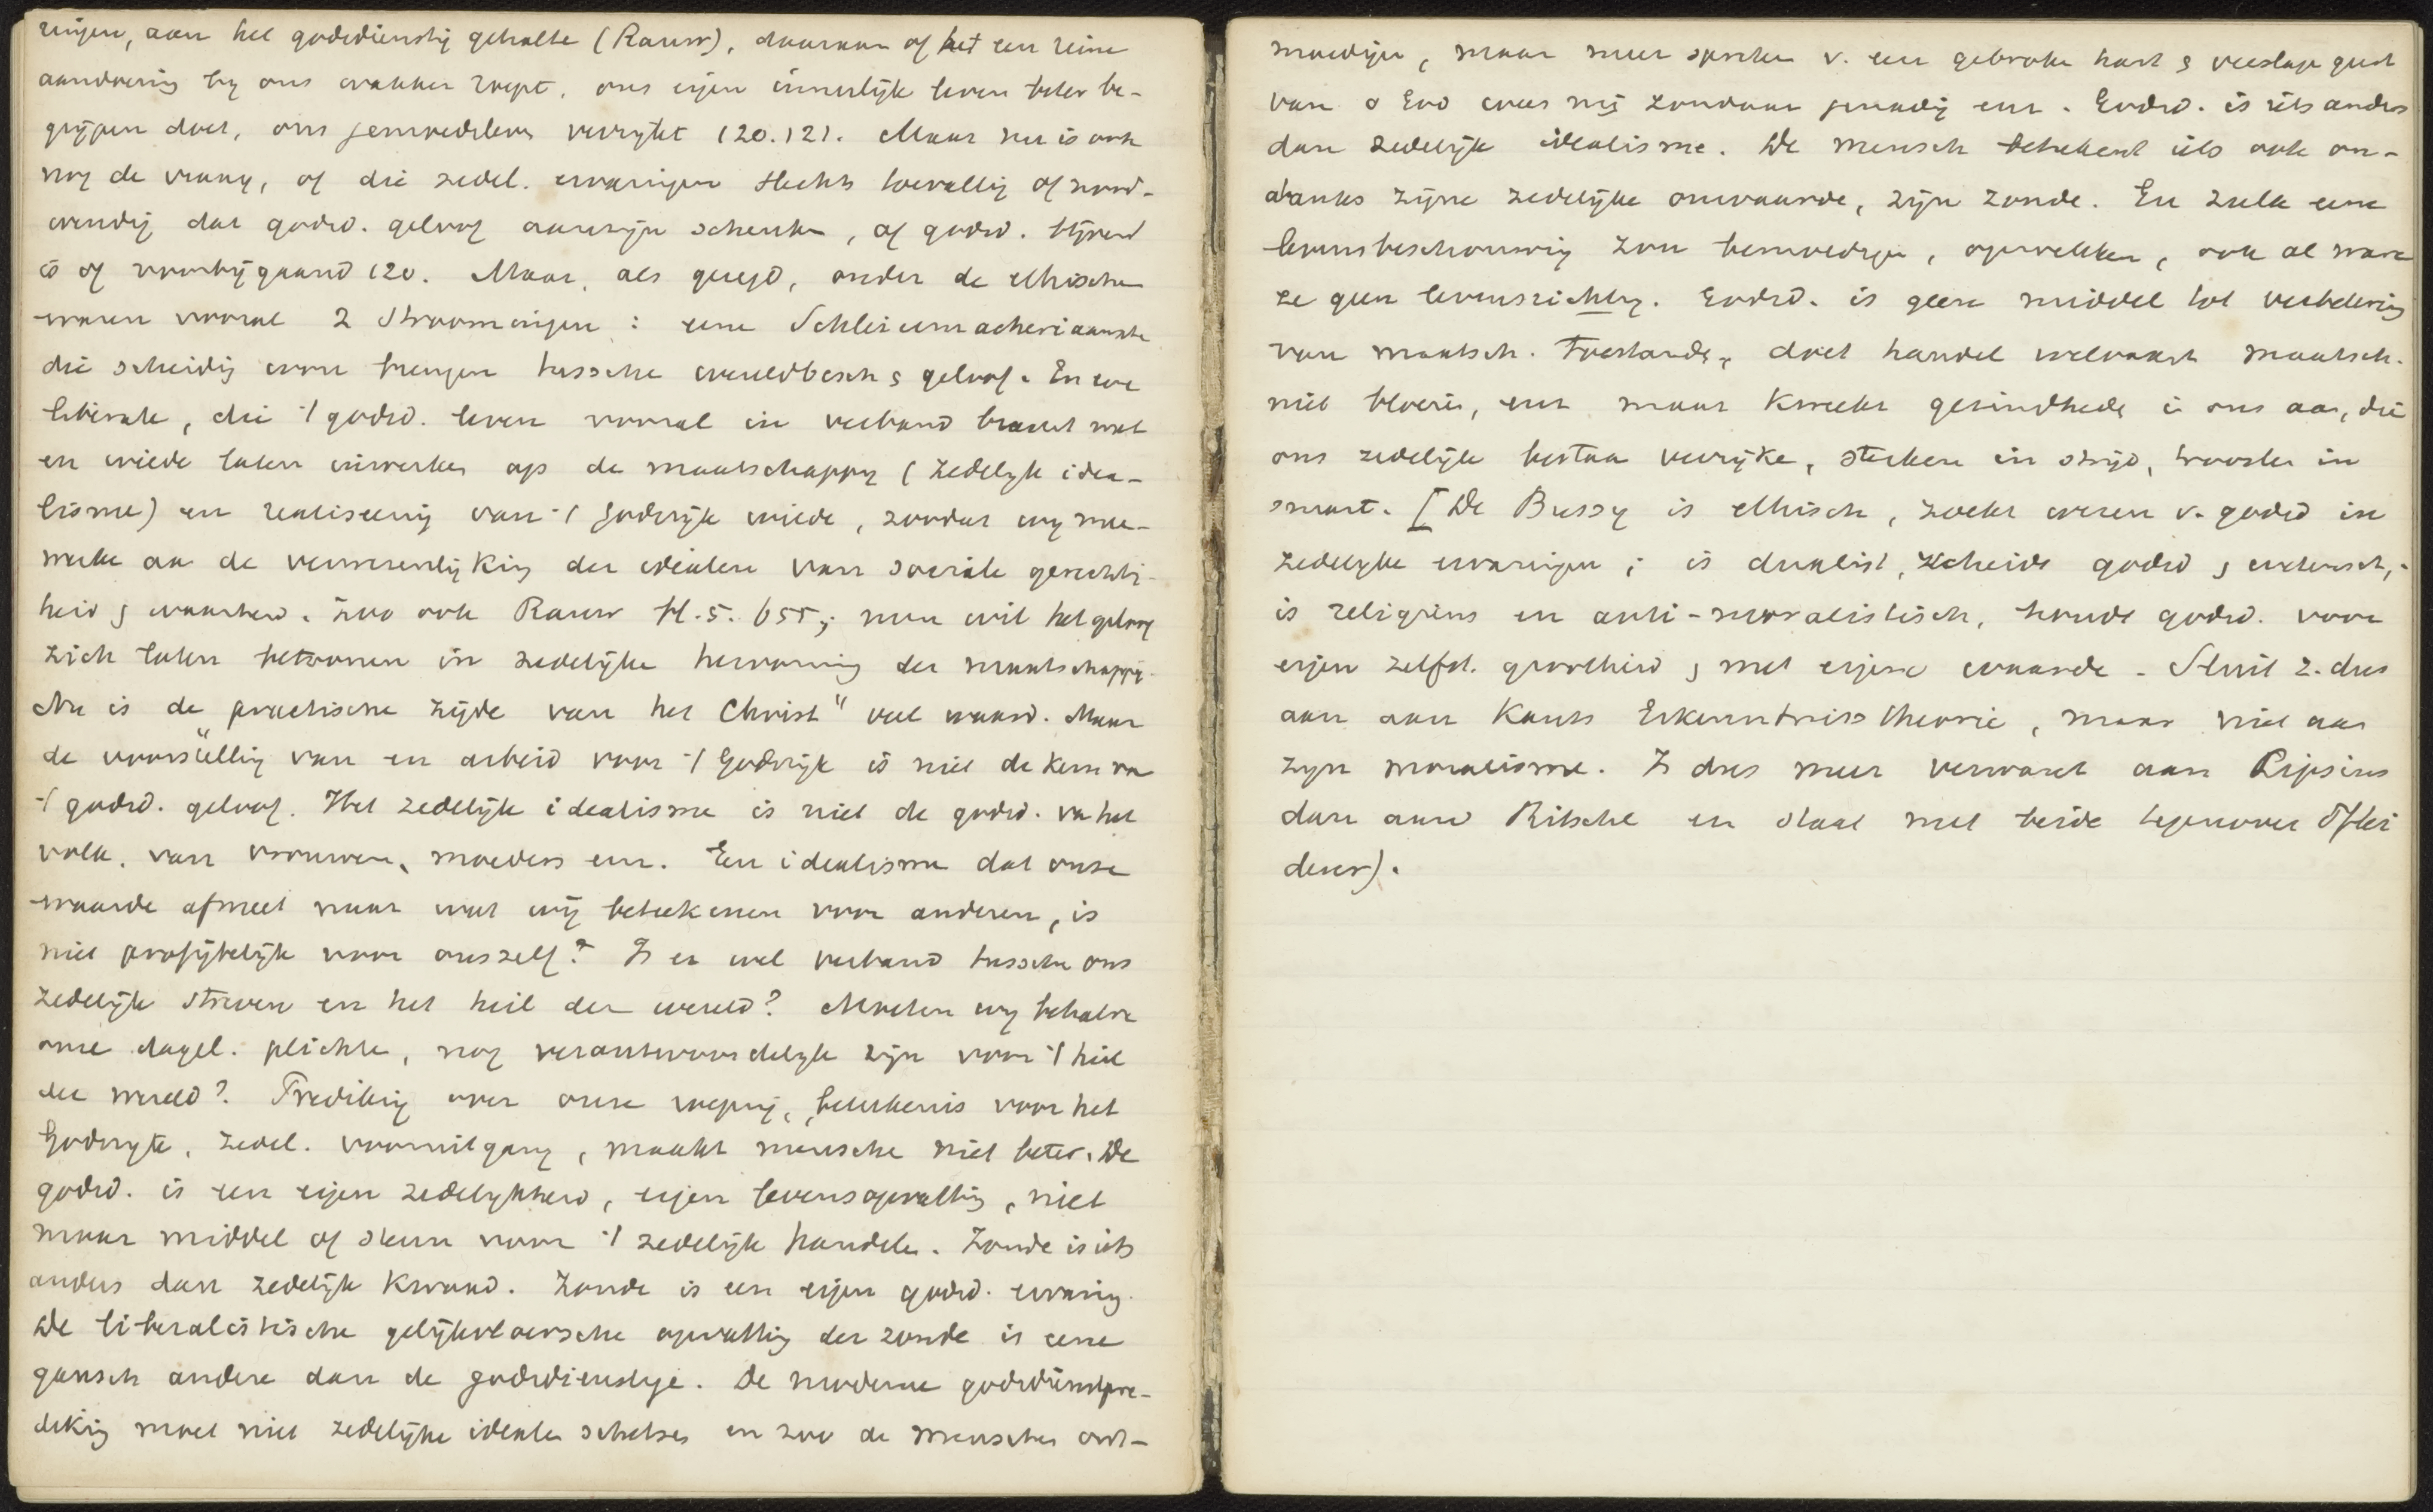 ringen, aan het godsdienstig gehalte (Rauw), daaraan of het een reine
aandoening by ons wakker roept, ons eigen innerlijk leven beter be-
grijpen doet, ons gemoedsleven verrijkt 120.121. Maar nu is ook
nog de vraag, of die zedel. ervaringen slechts toevallig of nood-
wendig dat godsd. geloof aanzijn schenken, of godsd. blijvend
is of voorbijgaand 120. Maar, als gezegd, onder de ethischen
waren vooral 2 Stroomingen: eene Schleiermacheriaansche
die scheiding wou brengen tussche wereldbesch & geloof. En eene
liberale, die 't godsd. leven vooral in verband bracht met
en wilde laten inwerken op de maatschappy (zedelyk idea-
lisme) en realiseering van 't Godsrijk wilde, zoodat wy mee-
werke aan de verwezenlijking der idealen van sociale gerechtig-
heid & waarheid. Zoo ook Rauw bl. 5. 655; men wil het geloof
zich laten betoonen in zedelijke hervorming der maatschappij.
Nu is de practische zijde van het Christ" veel waard. Maar
de voorstelling van en arbeid voor 't Godsrijk is niet de kern van
't godsd. geloof. Het zedelijk idealisme is niet de godsd. van het
volk, van vrouwen, moeders enz. Een idealisme dat onze
waarde afmeet naar wat wij beteekenen voor anderen, is
niet profijtelijk voor onszelf? Is er wel verband tussche ons
zedelijk streven en het heil der wereld? Moeten wy behalve
onze dagel. plichte, nog verantwoordelyk zijn voor 't heil
der wereld? Prediking over onze roeping, beteekenis voor het
Godsryk, zedel. vooruitgang, maakt mensche niet beter. De
godsd. is een eigen zedelykheid, eigen levensopvatting, niet
maar middel of steun voor 't zedelijk handele. Zonde is iets
anders dan zedelijk kwaad. Zonde is een eigen godsd. ervaring.
De liberalistische gelijkvloersche opvatting der zonde is eene
gansch andere dan de godsdienstige. De moderne godsdienstpre-
diking moet niet zedelijke idealen schetsen en zoo de menschen ont-
moedigen, maar meer spreken v. een gebroken hart & verslage geest
van o God wees mij zondaar genadig enz. Godsd. is iets anders
dan zedelijk idealisme. De mensch beteekent iets ook on-
danks zijne zedelijke onwaarde, zijn zonde. En zulk eene
levensbeschouwing zou bemoedigen, opwekken, ook al ware
ze geen levensrichting. Godsd. is geen middel tot verbetering
van maatsch. toestanden, doet handel welvaart maatsch.
niet bloeien, enz maar kweekt gezindhede i ons aan, die
ons zedelijk bestaan verrijke, sterken in strijd, troosten in
smart. [De Bussy is ethisch, zoekt wezen v. godsd in
zedelyke ervaringen; is dualist, scheidt godsd & wetensch,;
is religieus en anti-moralistisch, houdt godsd. voor
eigen zelfst. grootheid & met eigene waarde. Sluit z. dus
aan aan Kants Erkenntniss theorie, maar niet aan
zijn moralisme. Is dus meer verwant aan Lipsius
dan aan Ritschl en staat met beide tegenover Pflei
derer).